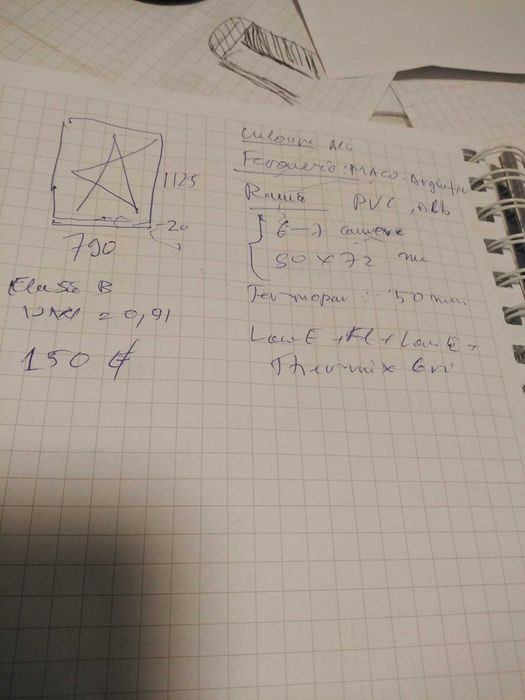 1125
20
790
Clasa B
= 0,91
150 €
Culoare Alb
Feroneria: MACO - Argintiu
Rama PVC, Alb
6-7 camere
80 x 72 mm
Termopan: 50 mm
Low E + + Low E +
Thermix Gri